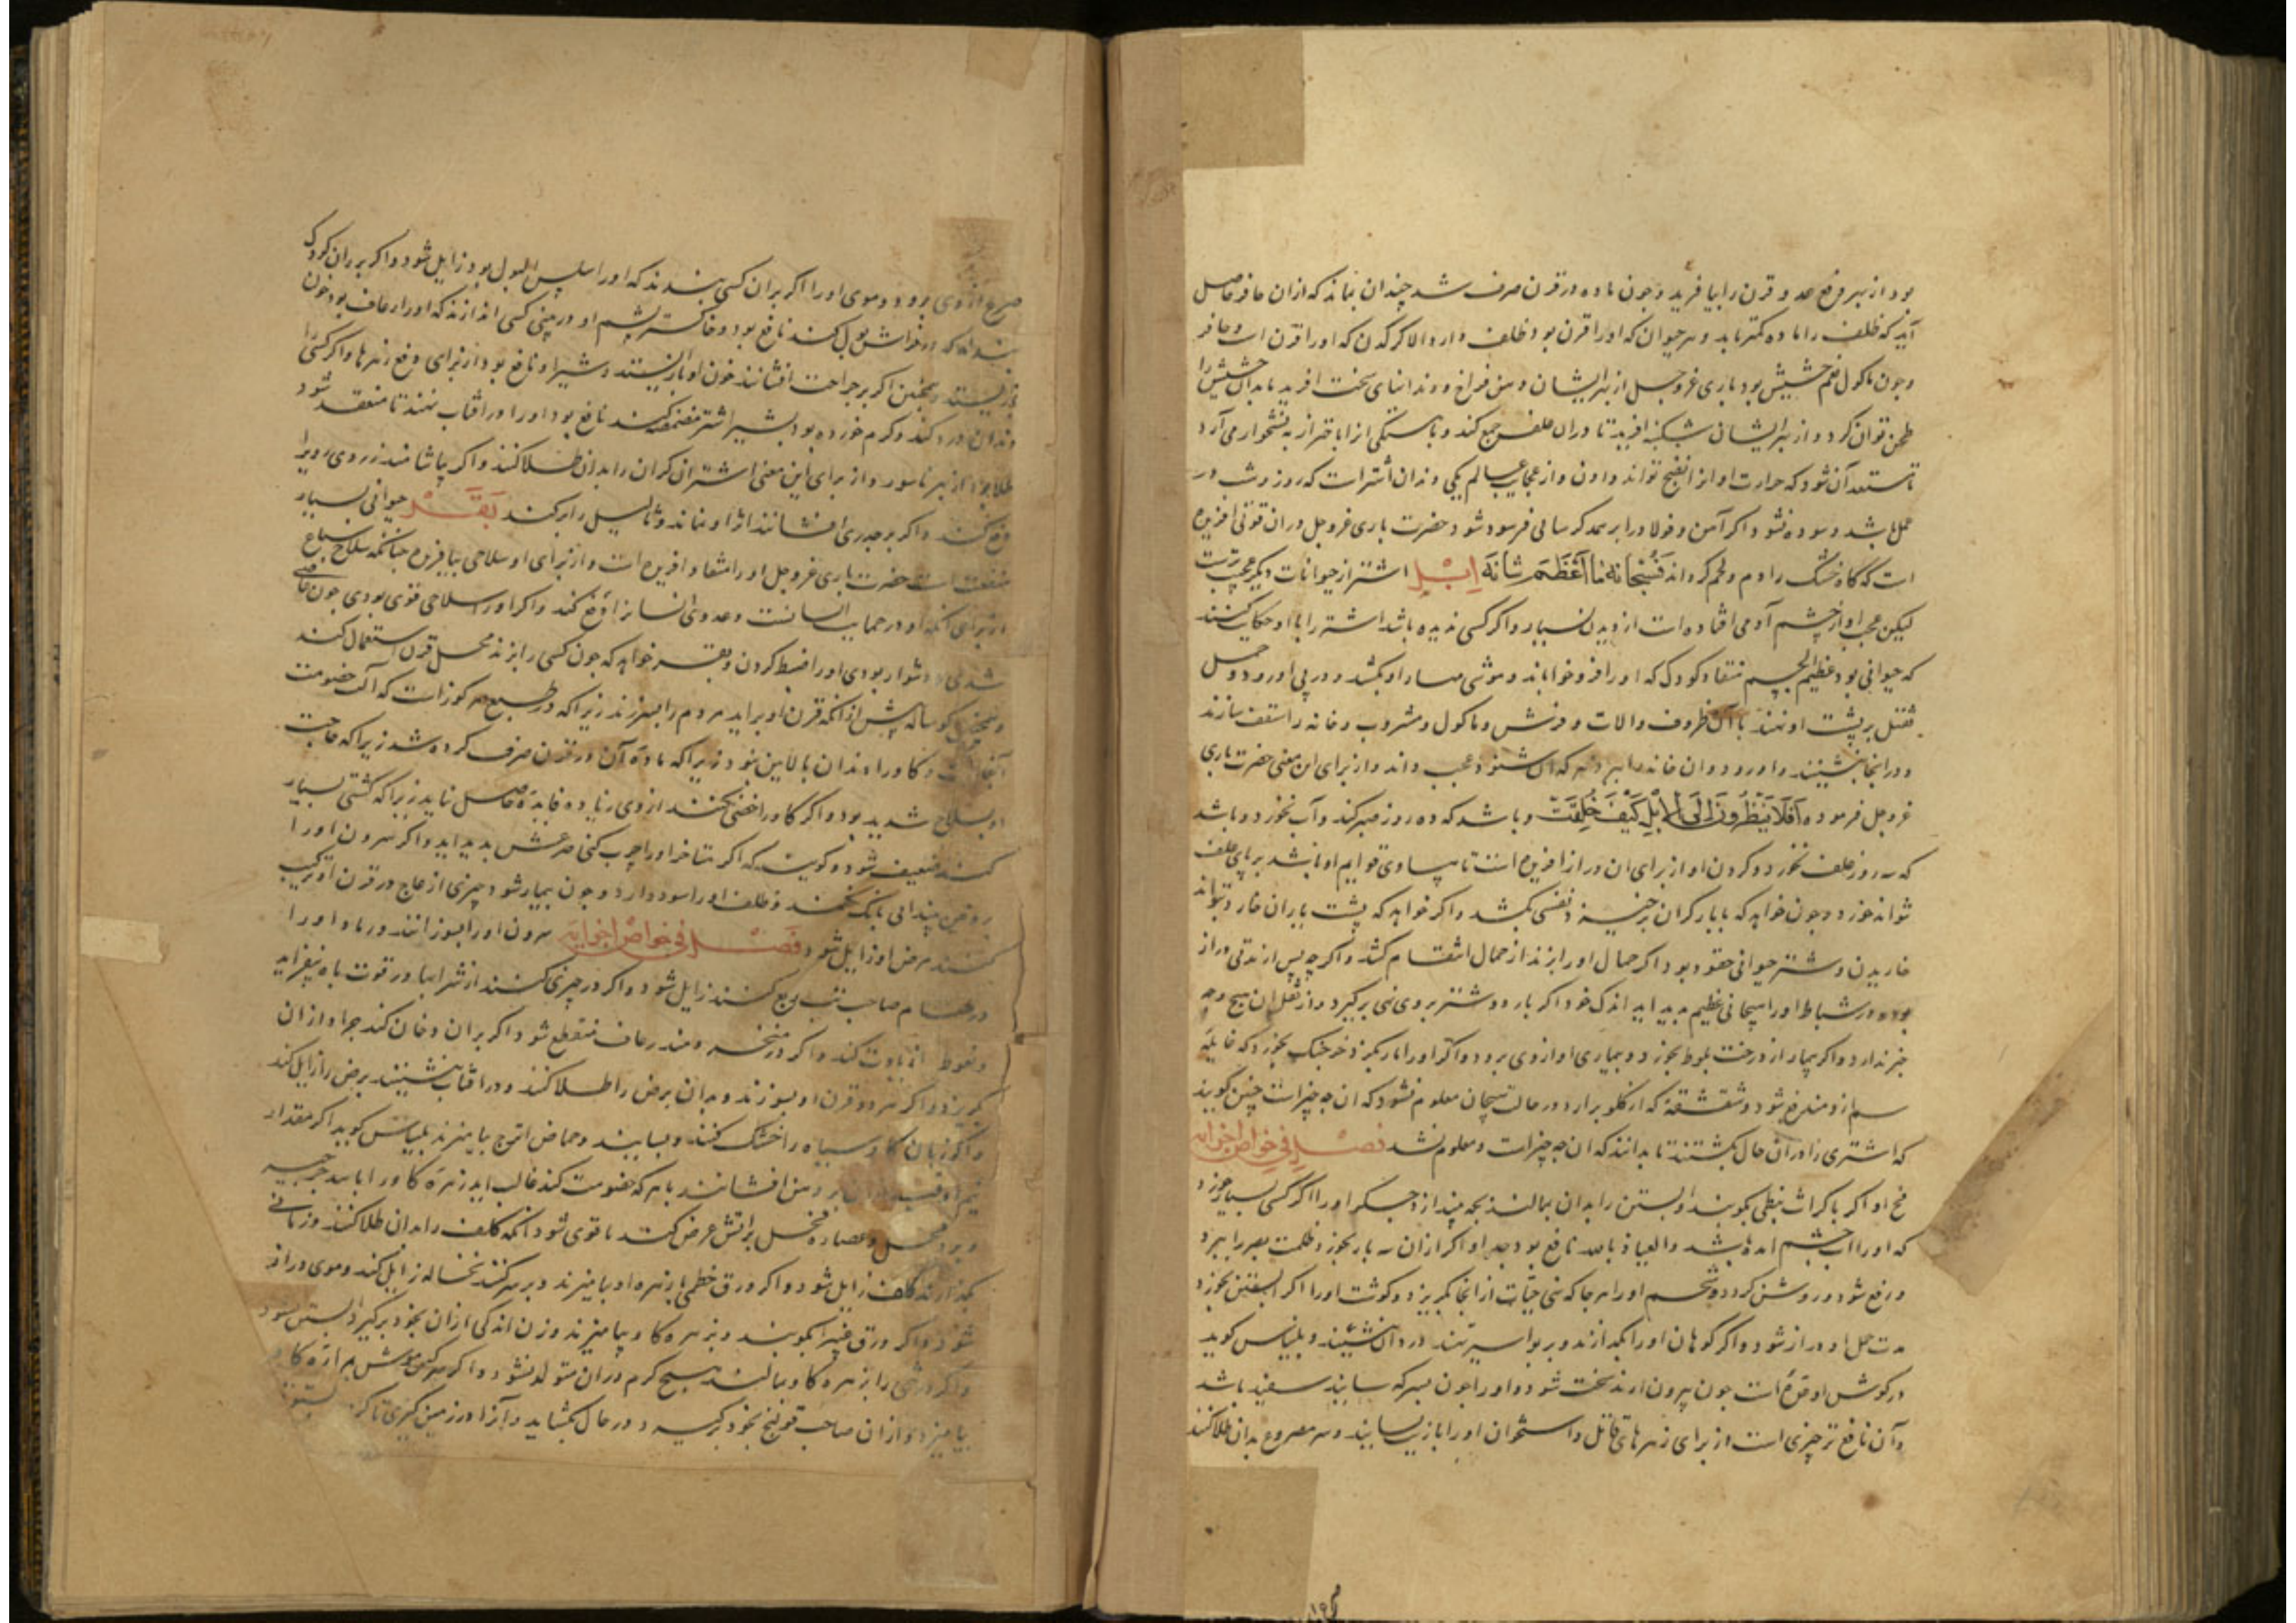 بود از بهر دفع عدو قرن را بیافرید و چون ماده در قرن صرف شد چندان نماند که ازان حافر حاصل
آید که ظلف را ماده کمتر باید و هر حیوان که او را قرن بود ظلف دارد الا کرکدن که او را قرن است و حافر
و چون ماکول نعم حشیش بود باری عز و جل از بهر ایشان دهن فراخ و دندانهای سخت افرید تا بدان حشیش را
طحن توان کرد و از بهر ایشان شکنبه افرید تا دران علف جمع کند و باستکی از اباخر از به نشخوار می آرد
تا مستعد آن شود که حرارت او انرا نضج تواند دادن و از عجایب عالم یکی دندان اشتر است که روز و شب در
عمل باشد و سوده نشود اکر آهن و فولاد را بر هم کر سالی فرسوده شود حضرت باری عز و جل دران قوتی افریده
است که کاه خشک را دم و لحم کرداند فسبحانه ما اعظم شانه ابل اشتر از حیوانات دیکر عجب ترست
لیکن عجب او از چشم آدمی افتاده است از دیدن بسیار و اکر کسی ندیده باشد اشتر را با او حکایت کنند
که حیوانی بود عظیم الجسم منقاد کودک که او را فرو خواباند و موشی مهار او بکشد و در پی او رود و حمل
ثقیل بر پشت او نهند با آن ظروف و الات و فرش و ماکول و مشروب و خانه را سقف سازند
و در انجا نشینند و او رود و ان خانه را ببرد هر که ان شنود عجب داند و از برای این معنی حضرت باری
عز و جل فرموده افلا ینظرون الی الابل کیف خلقت و باشد که ده روز صبر کند و آب نخورد و باشد
که سه روز علف نخورد و کردن او از برای ان دراز افریده است تا مساوی قوایم او باشد بر پای علف
تواند خورد و چون خواهد که با بار کران برخیزد نفسی بکشد و اکر خواهد که پشت با پران خارد بتواند
خاریدن و شتر حیوانی حقود بود اکر حمال او را بزند از حمال انتقام کشد و اکر چه پس از مدتی دراز
بود و در شباط او را هیجانی عظیم پدید اید اندک خورد اکر بار دو شتر بر وی نهی برکیرد و از ثقل ان هیچ وجه
خبر ندارد و اکر بیمار از درخت بلوط بخورد بیماری او از وی برود و اکر او را مار بکزد خرچنک بخورد که غایله
سم ازو مندفع شود و شقشقه که از کلو برارد در حالت هیجان معلوم نشود که ان چه چیز است چنین کویند
که اشتری را دران حال بکشتند تا بدانند که ان چه چیز است و معلوم نشد فصل فی خواص اجزایه
مخ او اکر با کراث نبطی بکوبند و ابستن را بدان بمالند بچه بیندازد جکر او را اکر کسی بسیار خورد
که او را اب چشم امده باشد و العیاذ بالله نافع بود جکر او اکر ازان سه بار بخورد ظلمت بصر را ببرد
و رفع شود و روشن کردد شحم او را هر جا که نهی حیات از انجا بکریزد و کوشت او را اکر ابستن بخورد
مدت حمل او دراز شود و اکر کوهان او را بکدازند و بر بواسیر نهند درد ان نشیند و بلیناس کوید
در کوش او قره است چون بیرون ارند سخت شود و او را چون بسرکه سایند سفید باشد
و آن نافع تر چیزی است از برای زهرهای قاتل و استخوان او را بازیت بسایند و سر مصروع بدان طلا کنند
صرع از وی برود و موی او را اکر بر ان کسی بندند که او را سلس البول بود زایل شود و اکر بر ران کودک
بندند که در فراش بول کند نافع بود و خاکستر پشم او در بینی کسی اندازند که او را رعاف بود خون
باز ایستد و همچنین اکر بر جراحت افشانند خون او باز ایستد و شیر او نافع بود از برای دفع زهرها و اکر کسی را
دندان درد کند و کرم خورده بود بشیر اشتر مضمضه کند نافع بود او را و در افتاب نهند تا منعقد شود
طلا بود از بهر ناسور و از برای این معنی اشتران کران را بدان طلا کنند و اکر بیاشامند زردی روی را
دفع کند و اکر بر جدری افشانند اثر او نماند و ثالیل را برکند بقر حیوانی بسیار
منفعت است حضرت باری عز و جل او را منقاد افریده است و از برای او سلاحی نیافریده چنانکه سلاح سباع
از برای انکه او در حمایت انسانست و عدو وی انسان از او دفع کند و اکر او را سلاحی قوی بودی چون
شدی دشوار بودی او را ضبط کردن و بقر خواهد که چون کسی را بزند محل قرن استعمال کند
و همچنین کوساله پیش از انکه قرن او براید مردم را بسر زند زیرا که در طبع مرکوزات که آلت خصومت
و کاو را دندان بالایین نبود زیرا که ماده آن در قرن صرف کرده شد زیرا که حاجت
او بسلاح شدید بود و اکر کاو را خصی بکنند از وی زیاده فایده حاصل نیاید زیرا که کشتی بسیار
کند ضعیف شود و کویند که اکر مناخر او را چرب کنی صرعش پدید اید و اکر سرون او را
بروغن چندانی بانک نکند و ظلف او را سود دارد و چون بیمار شود چیزی از عاج در قرن او ترکیب
کنند مرض او زایل شود فصل فی خواص اجزایه سرون او را بسوزانند در ماده او را
در طعام صاحب تب ربع کنند زایل شود و اکر در چیزی کنند از شرابها در قوت باه بیفزاید
و نعوظ اثر باوت کند و اکر در منخر دمند رعاف منقطع شود و اکر بران دخان کند جراد ازان
بکریزد و اکر هر دو قرن او بسوزند و بدان برص را طلا کنند و در افتاب بنشینند برص را زایل کند
و اکر زبان کاو سیاه را خشک کنند و بسایند و حماض اترج بیامیزند بلیناس کوید اکر مقدار
بر دهن افشانند با هر که خصومت کند غالب اید زهره کاو را با
و عصاره نخل بر آتش عرض کند تا قوی شود انکه کلف را بدان طلا کنند و زمانی
بکذارند کلف زایل شود و اکر ورق خطمی با زهره او بیامیزند و بر سر کنند نخاله زایل کند و موی دراز
شود و اکر ورق غبیرا بکوبند و بزهره کاو بیامیزند و زن اندکی ازان بخود برکیرد ابستن شود
و اکر درختی را بزهره کاو بمالند هیچ کرم دران متولد نشود و اکر سرکین موش با مراره کاو
بیامیزد و ازان صاحب قولنج بخود برکیرد در حال بکشاید و آنرا در زمین کیری تا کرم